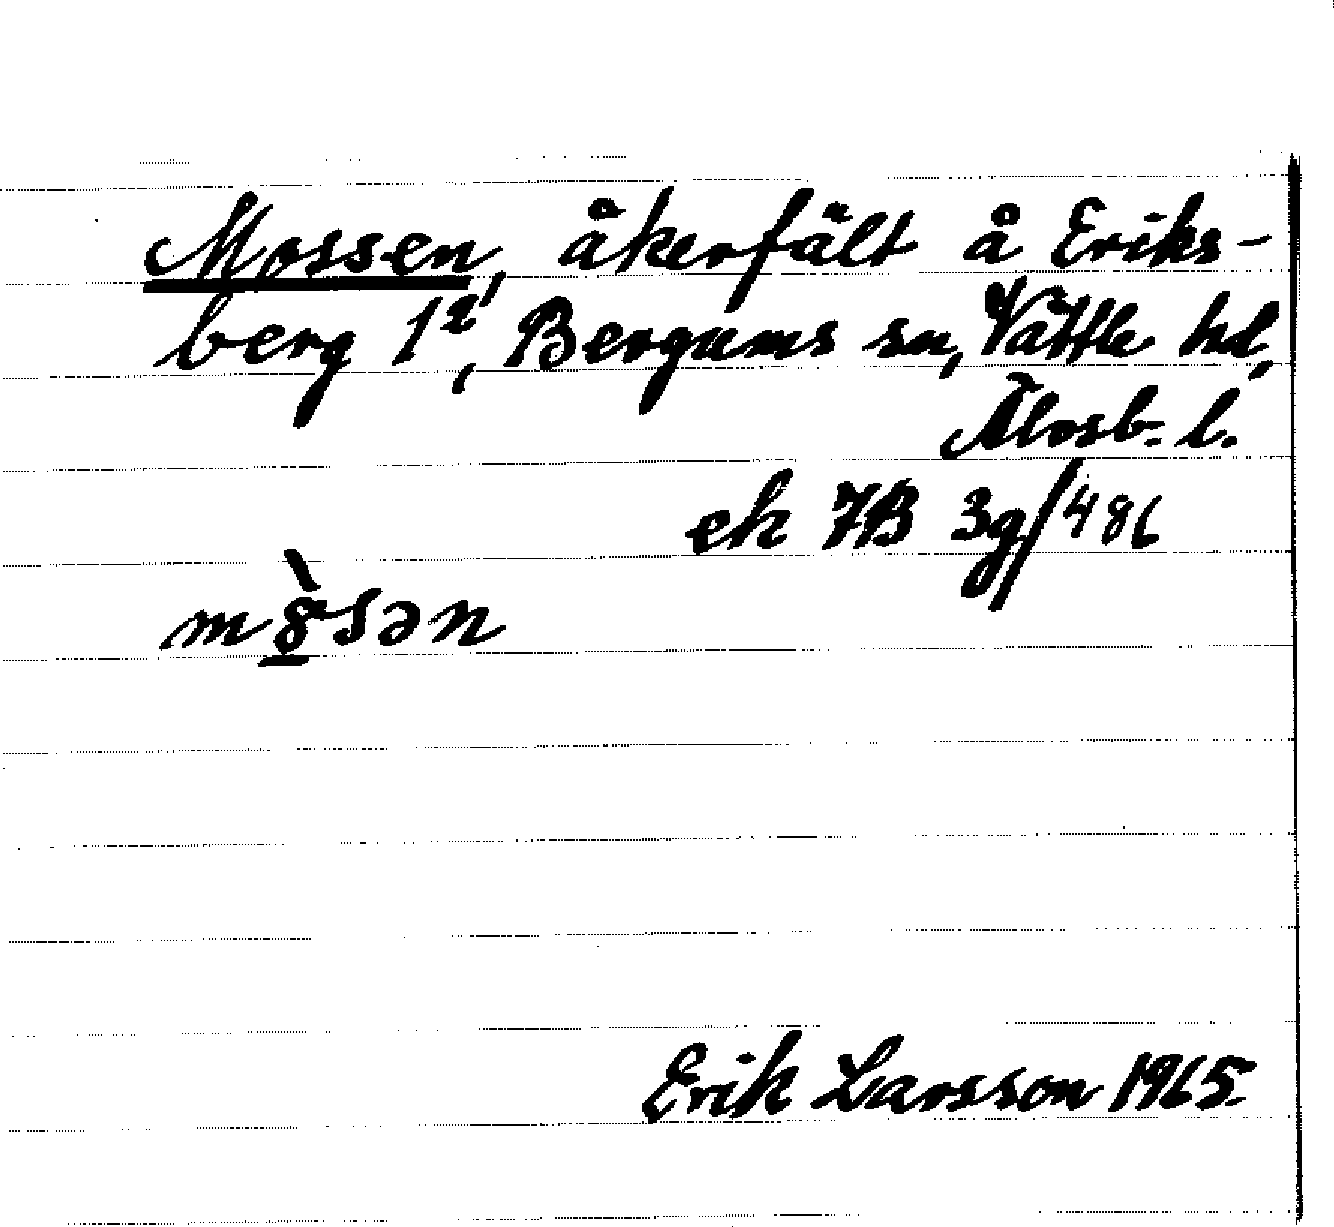 Mossen, åkerfält å Eriks-
berg 1², Bergums sn, Vättle hd,
Älvsb. l.
ek 7B 3g/486
m8̀sən
Erik Larsson 1965.